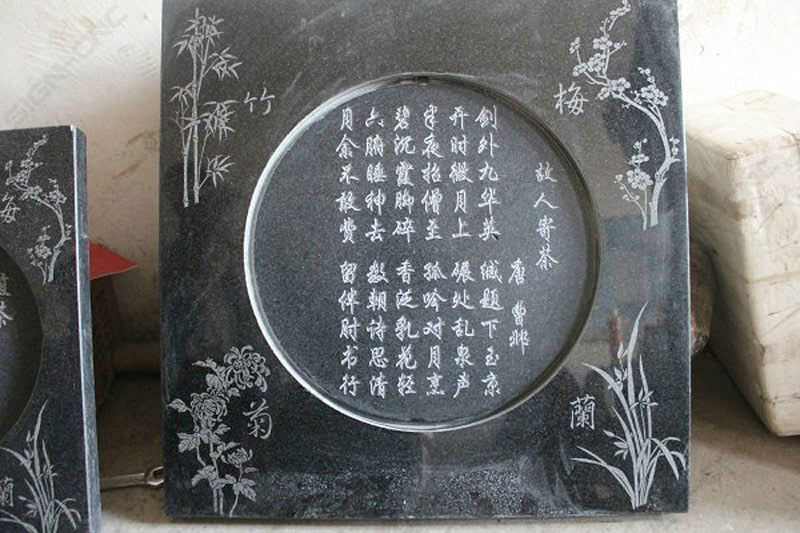 竹
梅
故人寄茶
唐 曹邺
剑外九华英 缄题下玉京
开时微月上 碾处乱泉声
半夜招僧至 孤吟对月烹
碧沉霞脚碎 香泛乳花轻
六腑睡神去 数朝诗思清
月余不敢费 留伴肘书行
菊
蘭
梅
茶
蘭